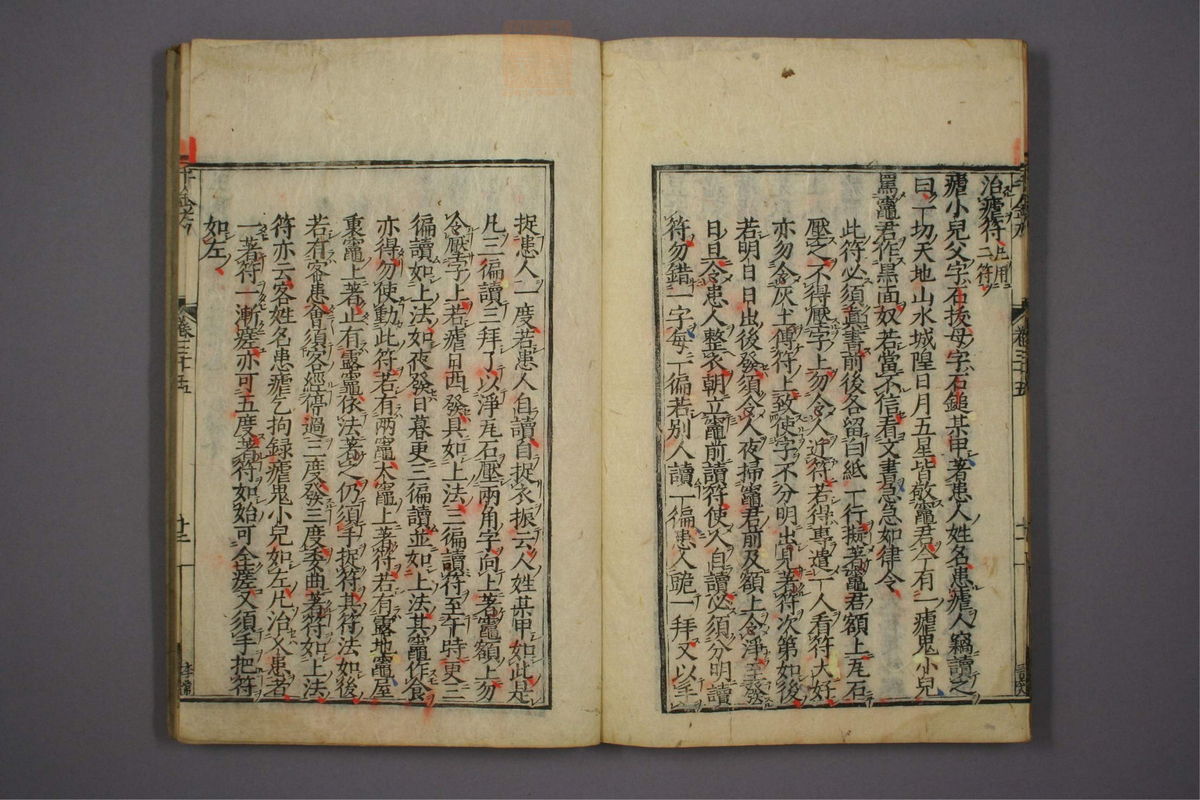 治瘧符凡用二符
瘧小兒父字石拔母字石鎚某甲著患人姓名患瘧人竊讀之
曰一切天地山水城隍日月五星皆敬竈君今有一瘧鬼小兒
罵竈君作黑面奴若當不信看文書急急如律令
此符必須眞書前後各留白紙一行擬著竈君額上瓦石
壓之不得壓字上勿令人近符若得專遣一人看符大好
亦勿令灰土傅符上致使字不分明出見著符次第如後
若明日日出後發須令人夜掃竈君前及額上令淨至發
日旦令患人整衣朝立竈前讀符使人自讀必須分明讀
符勿錯一字每一徧若別人讀一徧患人跪一拜又以手
捉患人一度若患人自讀自捉衣振云人姓某甲如此是
凡三徧讀三拜了以淨瓦石壓兩角字向上著竈額上勿
令壓字上若瘧日西發具如上法三徧讀符至午時更三
徧讀如上法如夜發日暮更三徧讀並如上法其竈作食
亦得勿使動此符若有兩竈大竈上著符若有露地竈屋
裏竈上著止有露竈依法著之仍須手捉符其符法如後
若有客患會須客經停過三度發三度委曲著符如上法
符亦云客姓名患瘧乞拘錄瘧鬼小兒如左凡治久患者
一著符一漸瘥亦可五度著符如始可全瘥又須手把符
如左
卷三十五
卷三十五